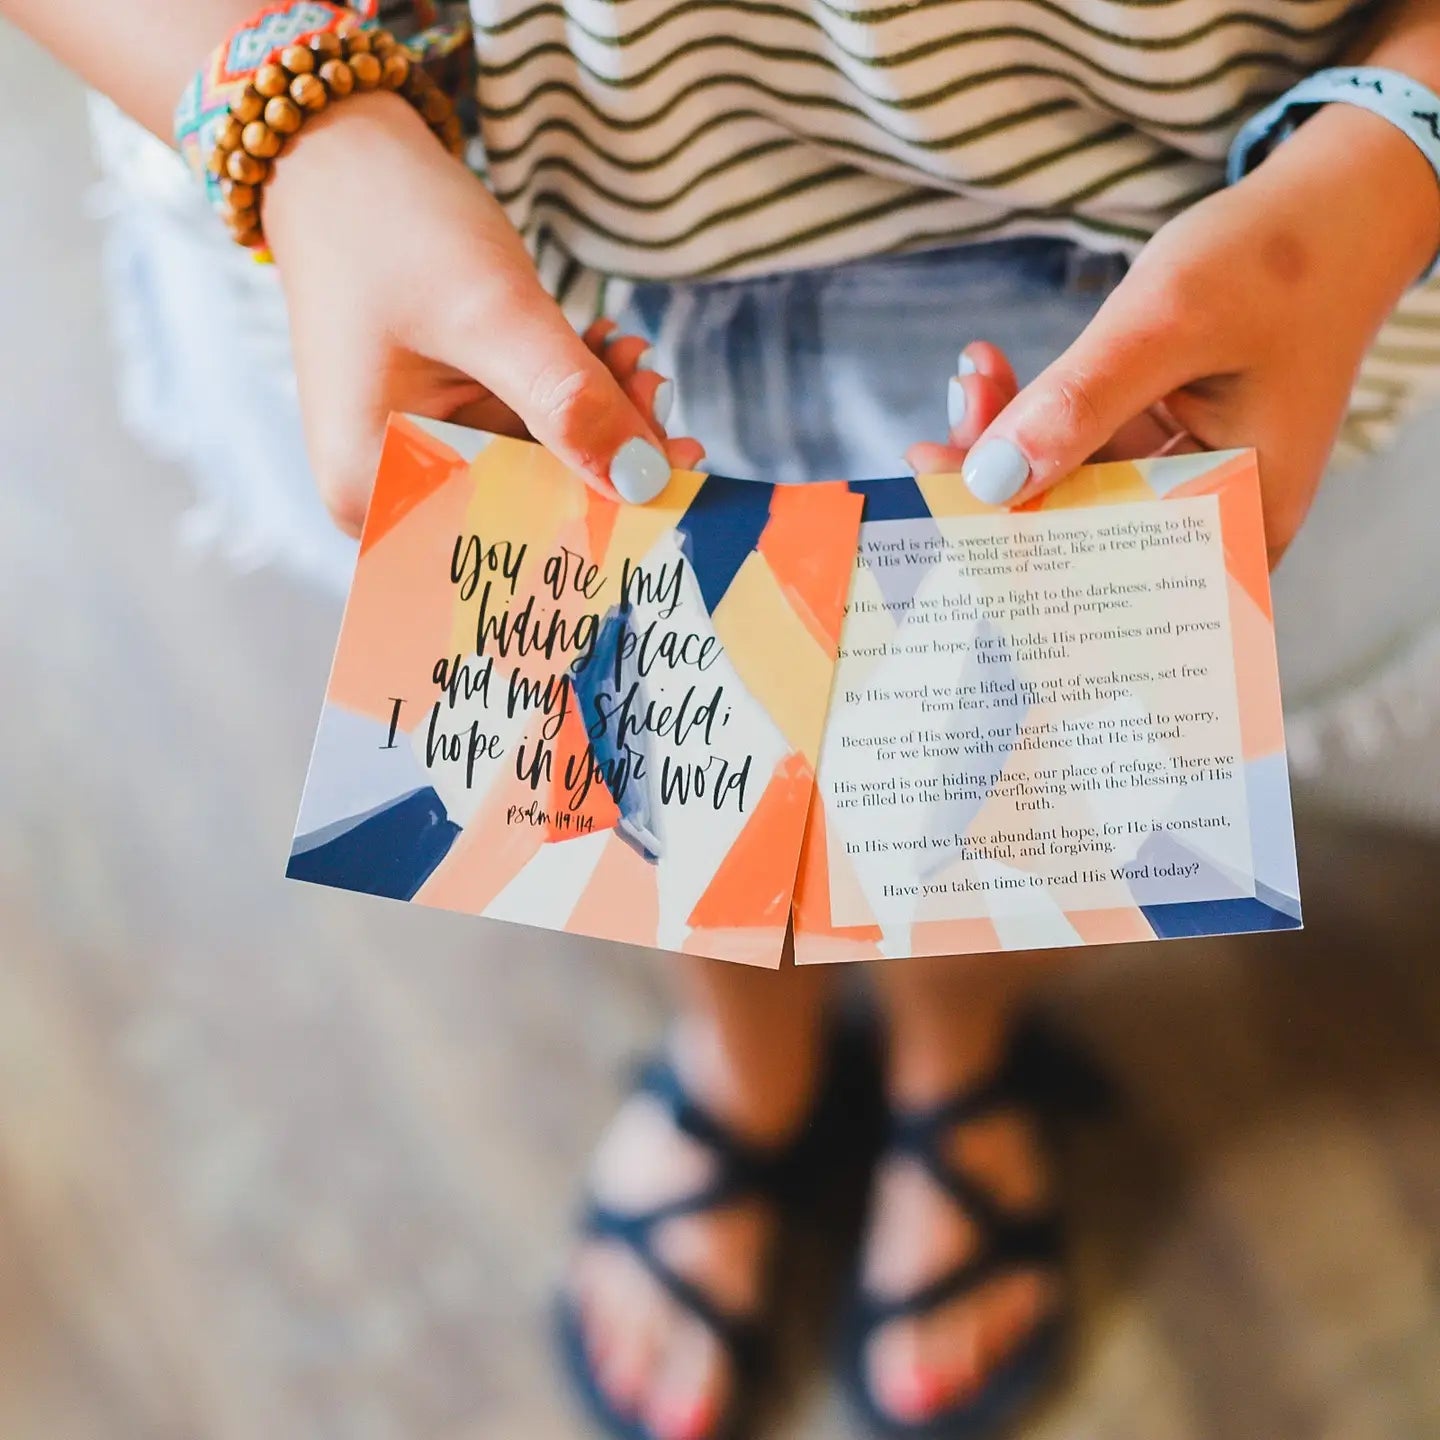 you are my
hiding place
and my shield;
I hope in your word
psalm 119:114
Word is rich, sweeter than honey, satisfying to the
By His Word we hold steadfast, like a tree planted by
streams of water.
His word we hold up a light to the darkness, shining
out to find our path and purpose.
is word is our hope, for it holds His promises and proves
them faithful.
By His word we are lifted up out of weakness, set free
from fear, and filled with hope.
Because of His word, our hearts have no need to worry,
for we know with confidence that He is good.
His word is our hiding place, our place of refuge. There we
are filled to the brim, overflowing with the blessing of His
truth.
In His word we have abundant hope, for He is constant,
faithful, and forgiving.
Have you taken time to read His Word today?